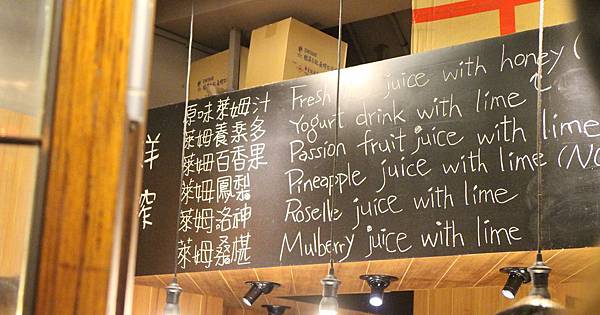 鮮
榨
原味萊姆汁 Fresh juice with honey (
萊姆養樂多 Yogurt drink with lime
萊姆百香果 Passion fruit juice with lime
萊姆鳳梨 Pineapple juice with lime (NO
萊姆洛神 Roselle juice with lime
萊姆桑椹 Mulberry juice with lime